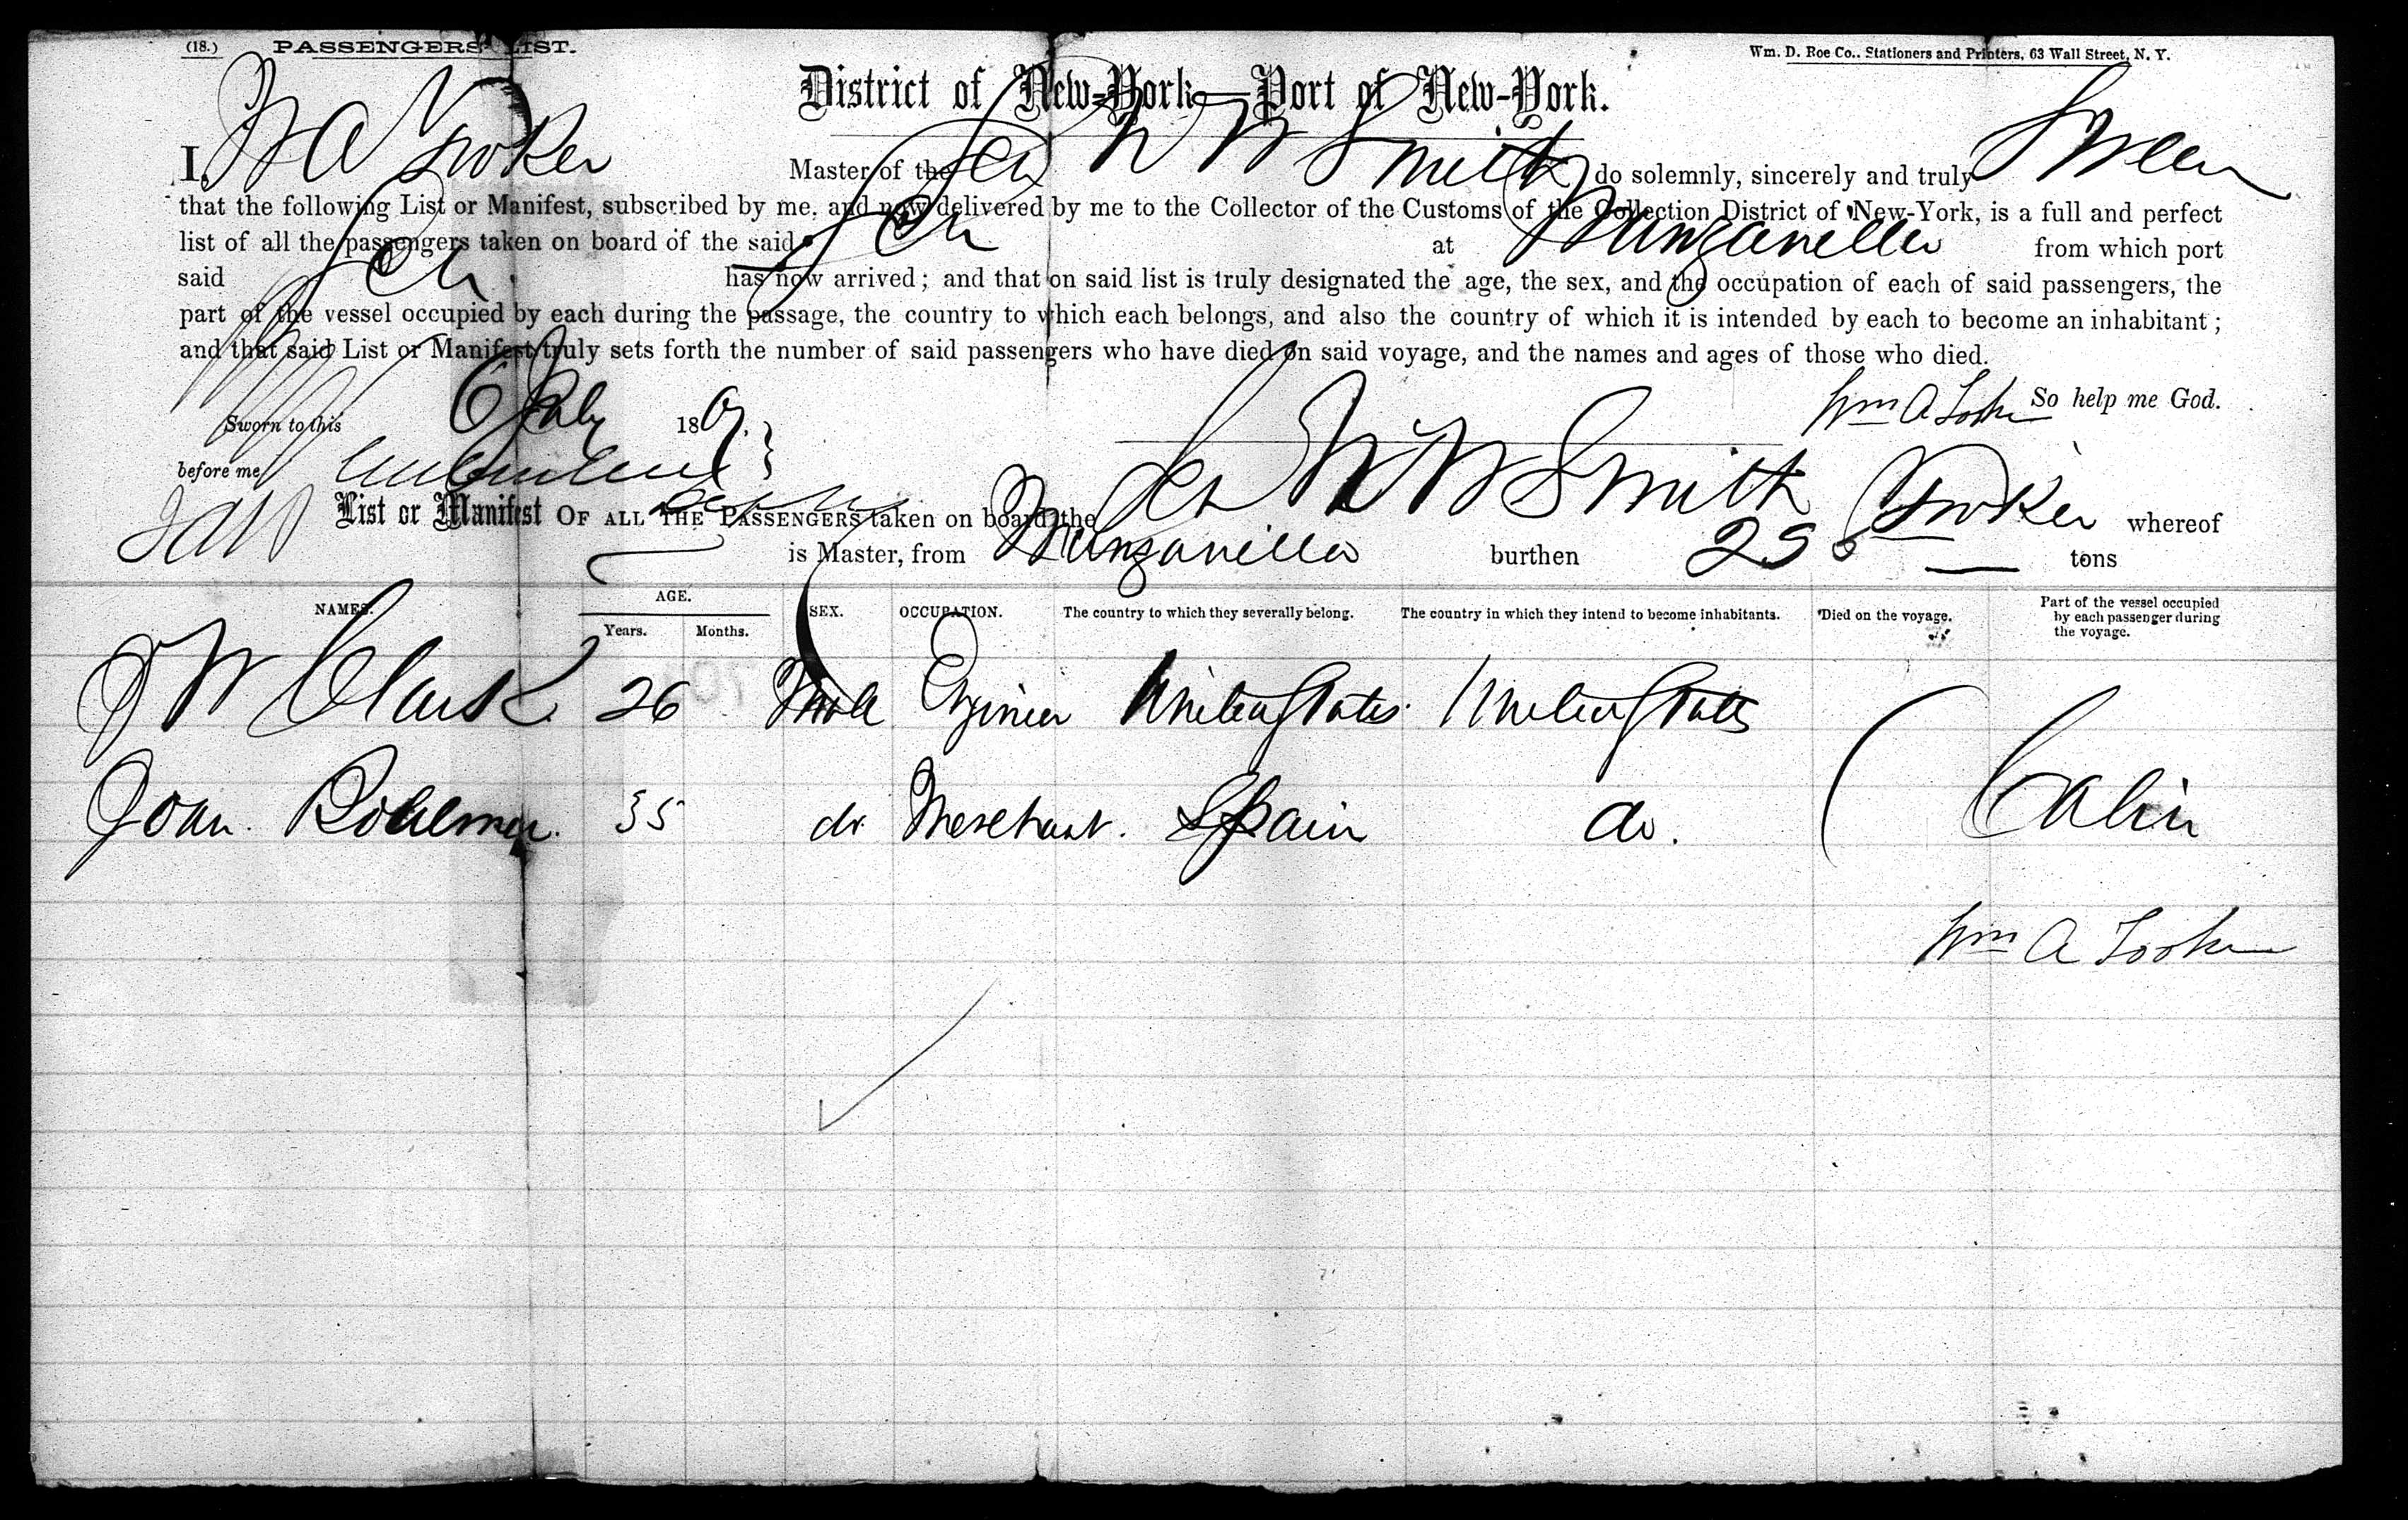 (18.) PASSENGERS' LIST. Wm. D. Roe Co., Stationers and Printers, 63 Wall Street, N. Y.
District of New-York—Port of New-York.
I, W A Tooker Master of the Sch W W Smith do solemnly, sincerely and truly Swear
that the following List or Manifest, subscribed by me, and now delivered by me to the Collector of the Customs of the Collection District of New-York, is a full and perfect
list of all the passengers taken on board of the said Sch at Manzanilla from which port
said Sch has now arrived; and that on said list is truly designated the age, the sex, and the occupation of each of said passengers, the
part of the vessel occupied by each during the passage, the country to which each belongs, and also the country of which it is intended by each to become an inhabitant;
and that said List or Manifest truly sets forth the number of said passengers who have died on said voyage, and the names and ages of those who died.
Wm A Tooker So help me God.
Sworn to this 6 July 18
before me
List or Manifest OF ALL THE PASSENGERS taken on board the Sch W W Smith Tooker whereof
is Master, from Manzanilla burthen tons
NAMES. AGE. Years. Months. SEX. OCCUPATION. The country to which they severally belong. The country in which they intend to become inhabitants. Died on the voyage. Part of the vessel occupied by each passenger during the voyage.
J W Clark 26 Male Enginier United States United States
Joan 35 do. Merchant. Spain do. Cabin
Wm A Tooker